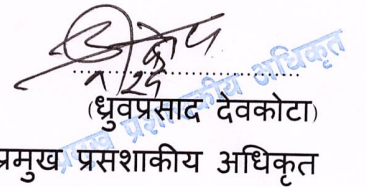 (ध्रुवप्रसाद देवकोटा)
प्रमुख प्रसशाकीय अधिकृत
प्रमुख प्रशासकीय अधिकृत